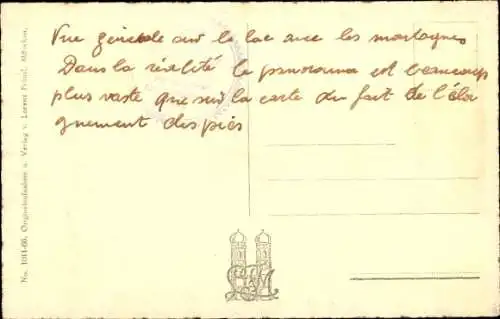 Vue générale sur le lac avec les montagnes
Dans la réalité le panorama est beaucoup
plus vaste que sur la carte du fait de l'éloi
gnement des
No. 1011-60. Originalaufnahme u. Verlag v. Lorenz Fränzl, München.